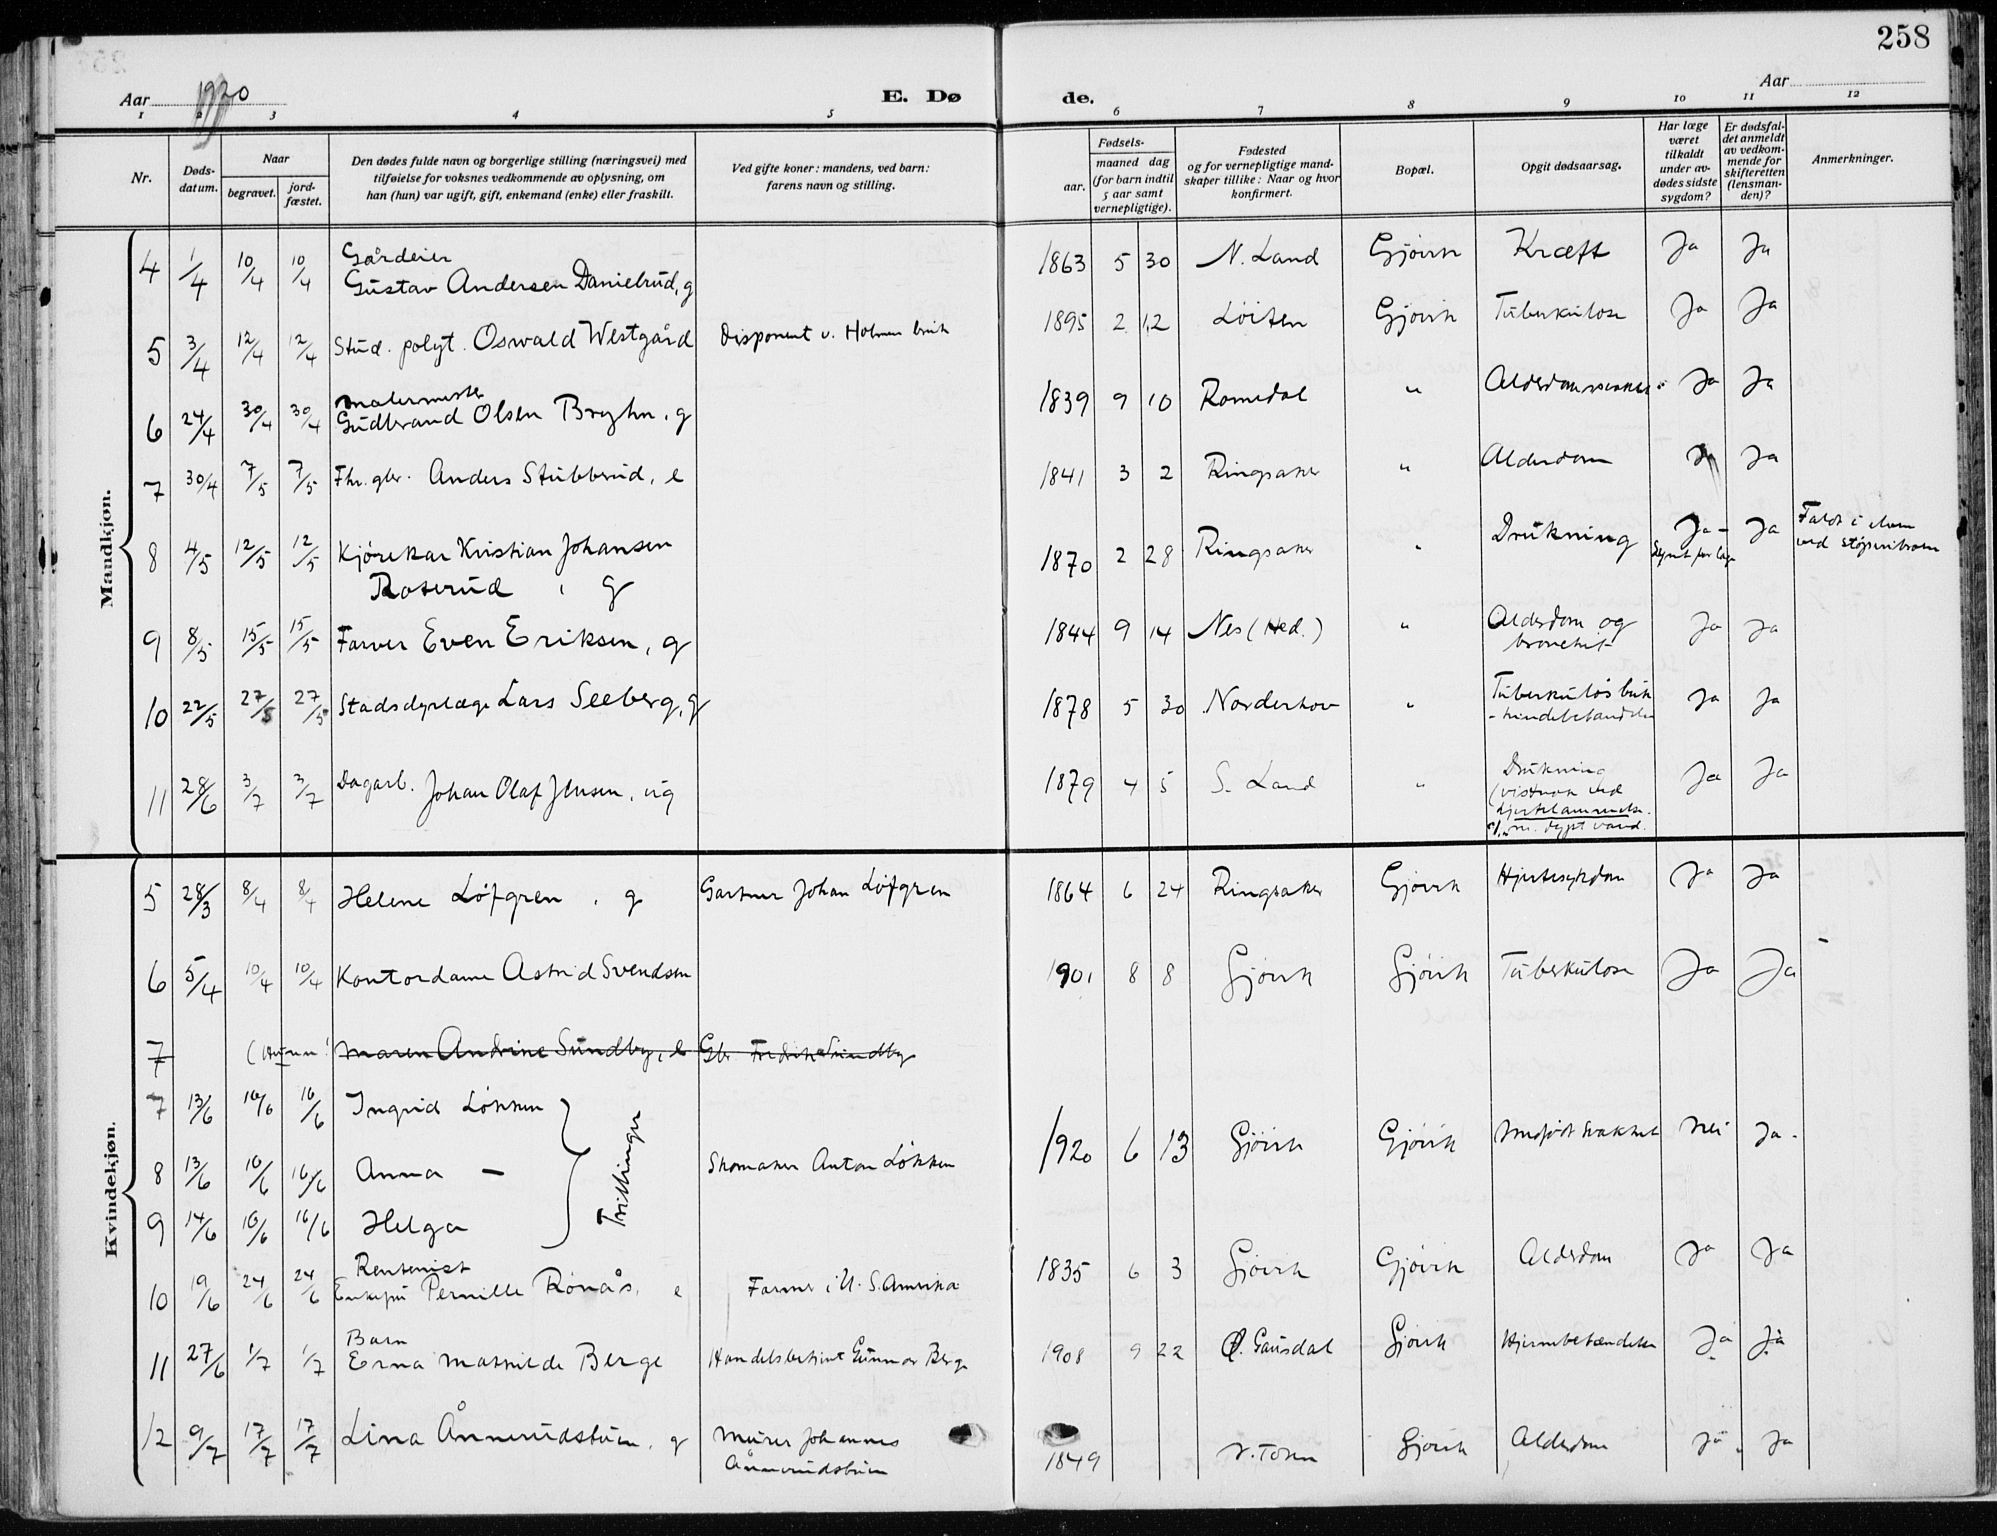 258
Aar 1920
E. Dø
de.
Aar
1 2 3 4 5 6 7 8 9 10 11 12
Nr.
Døds-
datum.
Naar
begravet.
jord-
fæstet.
Den dødes fulde navn og borgerlige stilling (næringsvei) med
tilføielse for voksnes vedkommende av oplysning, om
han (hun) var ugift, gift, enkemand (enke) eller fraskilt.
Ved gifte koner: mandens, ved barn:
farens navn og stilling.
Fødsels-
aar.
maaned dag
(for barn indtil
5 aar samt
vernepligtige).
Fødested
og for vernepligtige mand-
skaper tillike: Naar og hvor
konfirmert.
Bopæl.
Opgit dødsaarsag.
Har læge
været
tilkaldt
under av-
dødes sidste
sygdom?
Er dødsfal-
det anmeldt
av vedkom-
mende for
skifteretten
(lensman-
den)?
Anmerkninger.
Mandkjøn.
Gårdeier
4 1/4 10/4 10/4 Gustav Andersen Danielrud, g 1863 5 30 N. Land Gjövik Kræft Ja Ja
5 3/4 12/4 12/4 Stud. polyt. Oswald Westgård Disponent v. Holmen bruk 1895 2 12 Löiten Gjövik Tuberkulose Ja Ja
malermester
6 24/4 30/4 30/4 Gudbrand Olsen Bryhn, g 1839 9 10 Romedal " Ja Ja
7 30/4 7/5 7/5 Fhv. gbr. Anders Stubberud, e 1841 3 2 Ringsaker " Alderdom Ja Ja
8 4/5 12/5 12/5 Kjörekar Kristian Johansen 1870 2 28 Ringsaker " Drukning Ja - Ja Faldt i elven
Roterud, g ved
9 8/5 15/5 15/5 Farver Even Eriksen, g 1844 9 14 Nes (Hed.) " Alderdom og Ja Ja
bronchit
10 22/5 27/5 27/5 Stadsdyrlæge Lars Seeberg, g 1878 5 30 Norderhov " Tuberkuløs buk Ja Ja
- hindebetændelse
11 28/6 3/7 3/7 Dagarb. Johan Olaf Jensen, ug 1879 4 5 S. Land " Drukning Ja Ja
(vistnok ved
hjertelammelse.
m. dypt vand.
Kvindekjøn.
5 28/3 8/4 8/4 Helene Löfgren, g Gartner Johan Löfgren 1864 6 24 Ringsaker Gjövik Hjertesykdom Ja Ja
6 5/4 10/4 10/4 Kontordame Astrid Svendsen 1901 8 8 Gjövik Gjövik Tuberkulose Ja Ja
7 (Hunn! Maren Andrine Sundby, e Gbr. Fredrik Sundby
7 13/6 16/6 16/6 Ingrid Løkken
8 13/6 16/6 16/6 Anna — Skomaker Anton Løkken 1920 6 13 Gjövik Gjövik Medfødt svakhet Nei Ja.
9 14/6 16/6 16/6 Helga
Trillinger
Rentenist
10 19/6 24/6 24/6 Enkefru Pernille Rönås, e Farmer i U. S. Amerika 1835 6 3 Gjövik Gjövik Alderdom Ja Ja
Barn
11 27/6 1/7 1/7 Erna Mathilde Berge Handelsbetjent Gunnar Berge 1908 9 22 Ø. Gausdal Gjövik Hjernebetændelse Ja Ja
12 9/7 17/7 17/7 Lina Ånnerudstuen, g Murer Johannes 1849 V. Toten Gjövik Alderdom Ja Ja
Ånnerudstuen